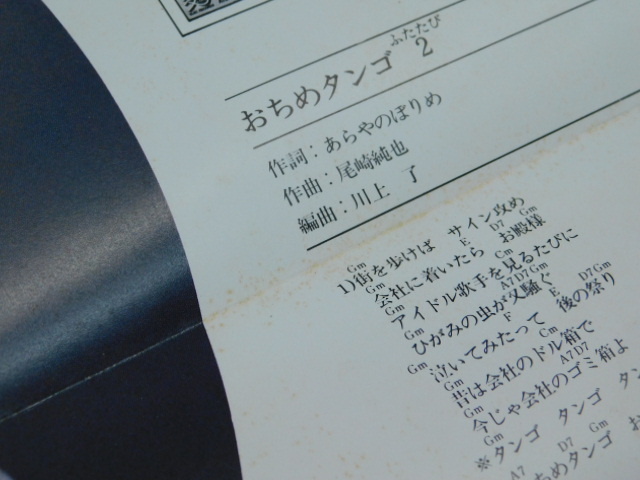 ふたたび
おちめタンゴ 2
作詞：あらやのぼりめ
作曲：尾崎純也
編曲：川上 了
Gm E D7 Gm
1)街を歩けば サイン攻め
Gm Cm
会社に着いたら お殿様
Gm A7 D7 Gm
アイドル歌手を見るたびに
Gm F E D7 Gm
ひがみの虫が又騒ぐ
Gm Cm
泣いてみたって 後の祭り
Gm A7 D7
昔は会社のドル箱で
Gm
今じゃ会社のゴミ箱よ
Gm
※タンゴ タンゴ タン
A7 D7 Gm
ちめタンゴ お